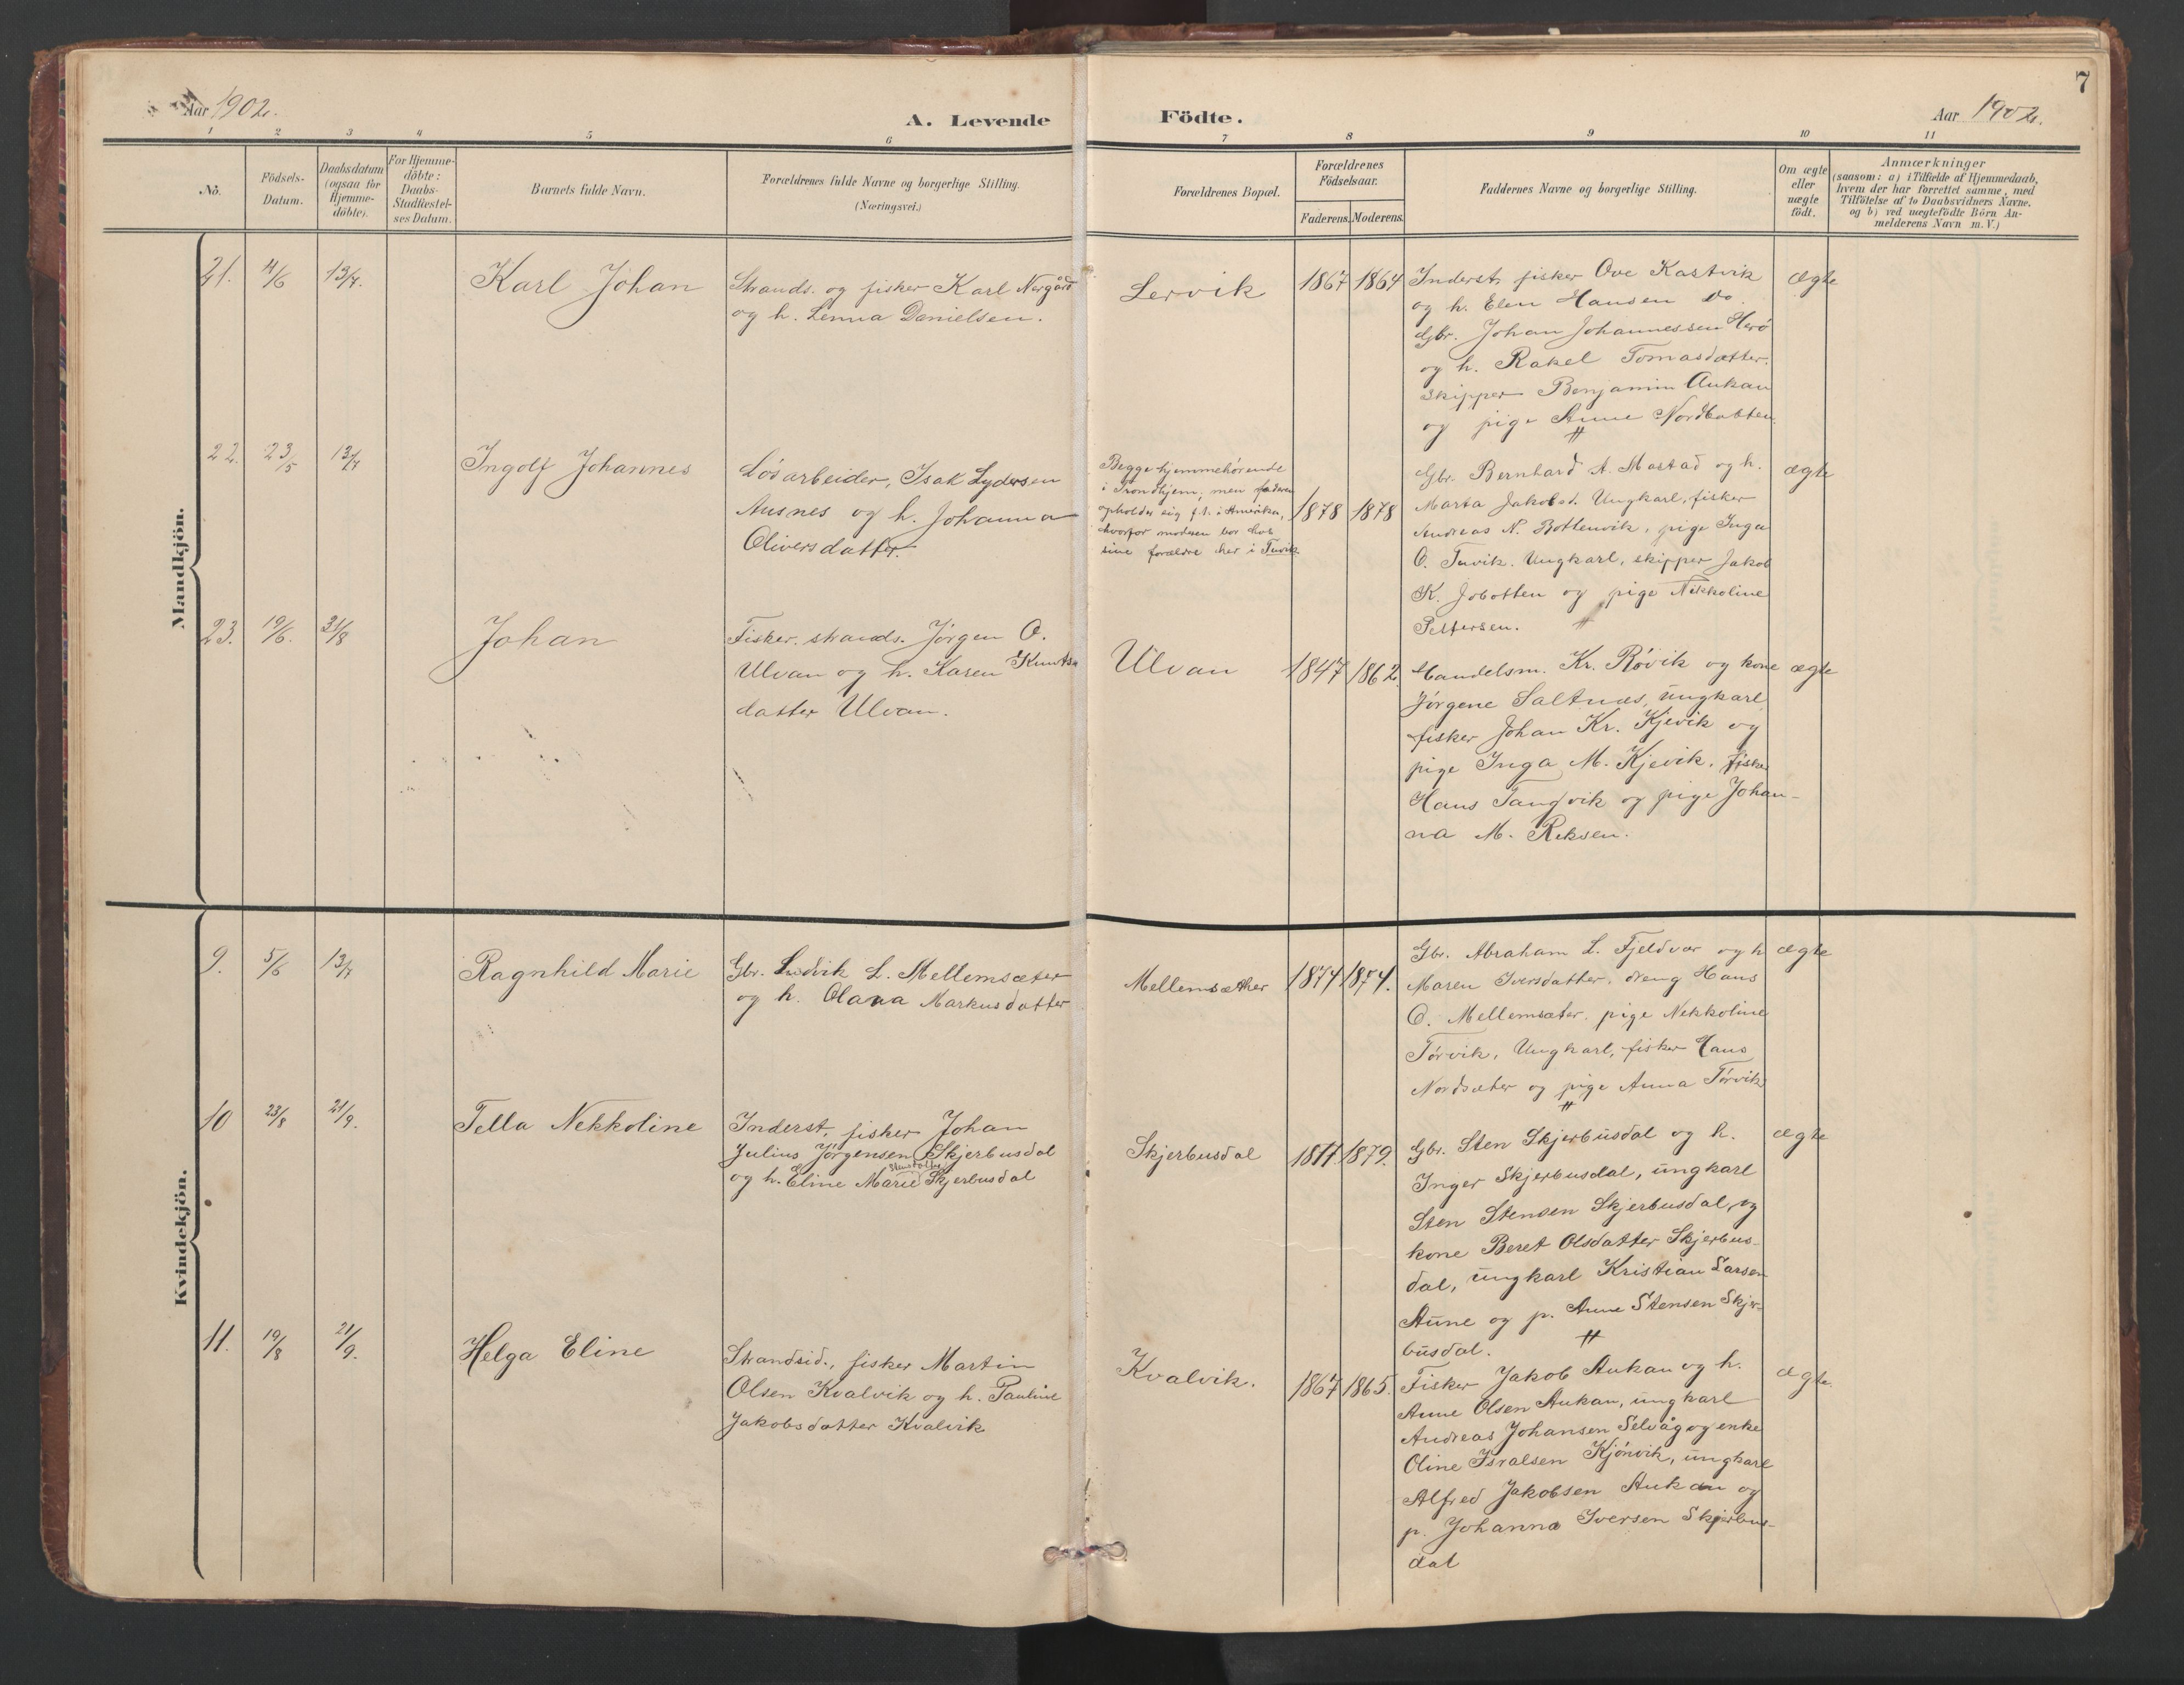 7
Aar 1902.
A. Levende Födte.
Aar 1902.
1 2 3 4 5 6 7 8 9 10 11
No.
Födsels-
Datum.
Daabsdatum
(ogsaa for
Hjemme-
döbte).
For Hjemme-
döbte:
Daabs-
Stadfæstel-
ses Datum.
Barnets fulde Navn.
Forældrenes fulde Navne og borgerlige Stilling.
(Næringsvei.)
Forældrenes Bopæl.
Forældrenes
Födselsaar.
Faderens. Moderens.
Faddernes Navne og borgerlige Stilling.
Om ægte
eller
uægte
födt.
Anmærkninger
(saasom: a) i Tilfælde af Hjemmedaab,
hvem der har forrettet samme, med
Tilföielse af to Daabsvidners Navne.
og b) ved uægtefödte Börn An-
melderens Navn m. V.)
Mandkjön.
21. 4/6 13/7. Karl Johan
Strands. og fisker Karl Nergård
og h. Lenna Danielsen.
Lervik 1867 1864
Inderst, fisker Ove Kastvik
og h. Elen Hansen do.
Gbr. Johan Johannessen Herö
og h. Rakel Tomasdatter.
skipper Benjamin Aukan
og pige Anne Nordbotten
ægte
22. 23/5 13/7 Ingolf Johannes
Lösarbeider, Isak Lydersen
Ausnes og h. Johanna
Oliversdatter.
Begge hjemmehörende
i Trondhjem, men faderen
opholder sig f. t. i Amerika,
hvorfor moderen bor hos
sine forældre her i Tuvik
1878 1878
Gbr. Bernhard A. Mastad og h.
Marta Jakobsd. Ungkarl, fisker
Andreas N. Bottenvik, pige Inga
O. Tuvik. Ungkarl, skipper Jakob
K. Jobotten og pige Nikkoline
Pettersen.
ægte
23. 19/6. 31/8 Johan
Fisker, strands. Jörgen O.
Ulvan og h. Karen Knuts
datter Ulvan.
Ulvan 1847 1862.
Handelsm. Kr. Rövik og kone
Jörgene Saltnæs, ungkarl
fisker Johan Kr. Kjevik og
pige Inga M. Kjevik, fisker
Hans Tangvik og pige Johan-
na M. Reksen.
ægte
Kvindekjön.
9. 5/6 13/7 Ragnhild Marie
Gbr. Ludvik L. Mellemsæter
og h. Olava Markusdatter
Mellemsæther 1874 1874.
Gbr. Abraham L. Fjeldvær og h
Maren Iversdatter, dreng Hans
O. Mellemsæter, pige Nekkoline
Törvik, Ungkarl, fisker Hans
Nordsæter og pige Anna Törvik
ægte
10 23/8 21/9. Tella Nekkoline
Inderst, fisker Johan
Julius Jörgensen Skjerbusdal
og h. Eline Marie Skjerbusdal
Skjerbusdal 1877 1879.
Gbr. Sten Skjerbusdal og h.
Inger Skjerbusdal, ungkarl
Sten Stensen Skjerbusdal, og
kone Beret Olsdatter Skjerbus-
dal, ungkarl Kristian Larsen
Aune og p. Anne Stensen Skjer-
busdal.
ægte
11. 19/8 21/9. Helga Eline
Strandsid., fisker Martin
Olsen Kvalvik og h. Pauline
Jakobsdatter Kvalvik
Kvalvik. 1867 1865.
Fisker Jakob Aukan og h.
Anne Olsen Aukan, ungkarl
Andreas Johansen Selvåg og enke
Oline Isralsen Kjönvik, ungkarl
Alfred Jakobsen Aukan og
p. Johanna Iversen Skjerbus-
dal
ægte.